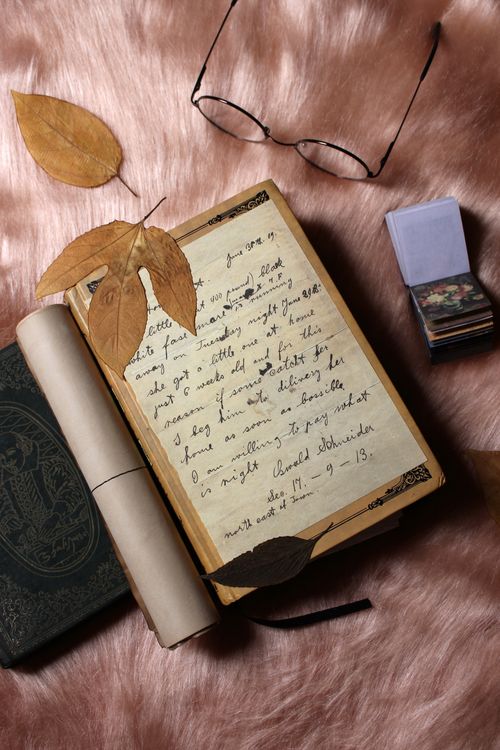 June 30th. 09.
st.
400 pound black
little fast mare is running
white
away on Tuesday night June 29th.
she got a little one at home
just 6 weeks old and for this
reason if some catch her
I beg him to delivery her
home as soon as bossible
I am willing to pay what
is right Oswald Schneider
Sec. 17. – 9 – 13.
north east of Town.